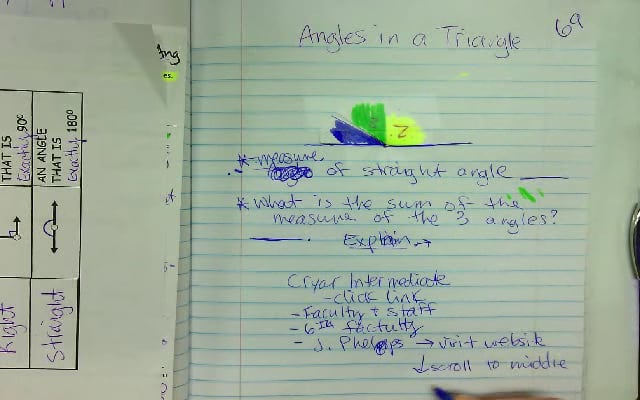 Ing
es.
THAT IS
Exactly 90°
AN ANGLE
THAT IS
Exactly 180°
Right
Straight
Angles in a Triangle
6a
2
*-measure
of straight angle ____
* What is the sum of the
measure of the 3 angles?
____. Explain →
Cryar Intermediate
- click link
- Faculty + staff
- 6th factulty
- J. Phelps → visit website
↓scroll to middle